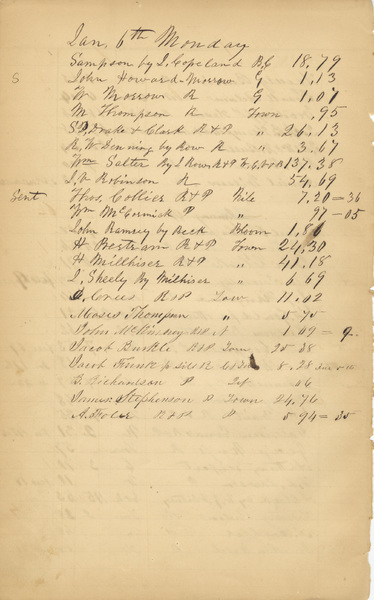 Jan, 6th Monday
Sampson by J. Copeland R, G 18,79
S John Howard - Morrow G 1,13
W Morrow R G 1,07
M Thompson R Town ,95
S, D, Drake & Clark R & P " 26,13
R, W Denning by Row R " 3,67
Wm Salter By J Row, R & P 137,38
J, V Robinson R 54,69
Sent Thos, Collier R & P Nile 7,20 = 36
Wm McCormick P " 97 - 05
John Ramsey by Beck Bloom 1,86
H Bertram R & P Town 24,30
H Millhiser R & P " 41,18
J, Skeely By Milhiser " 6 69
R & P Tow 11,02
Moses Thompson " 5 75
John 1 09 = 9
Jacob Burkle R & P Town 25 38
Jacob Funk 8,28
B. Richardson P 56
James Stephenson P Town 24,76
A. R & P P 5 94 = 35